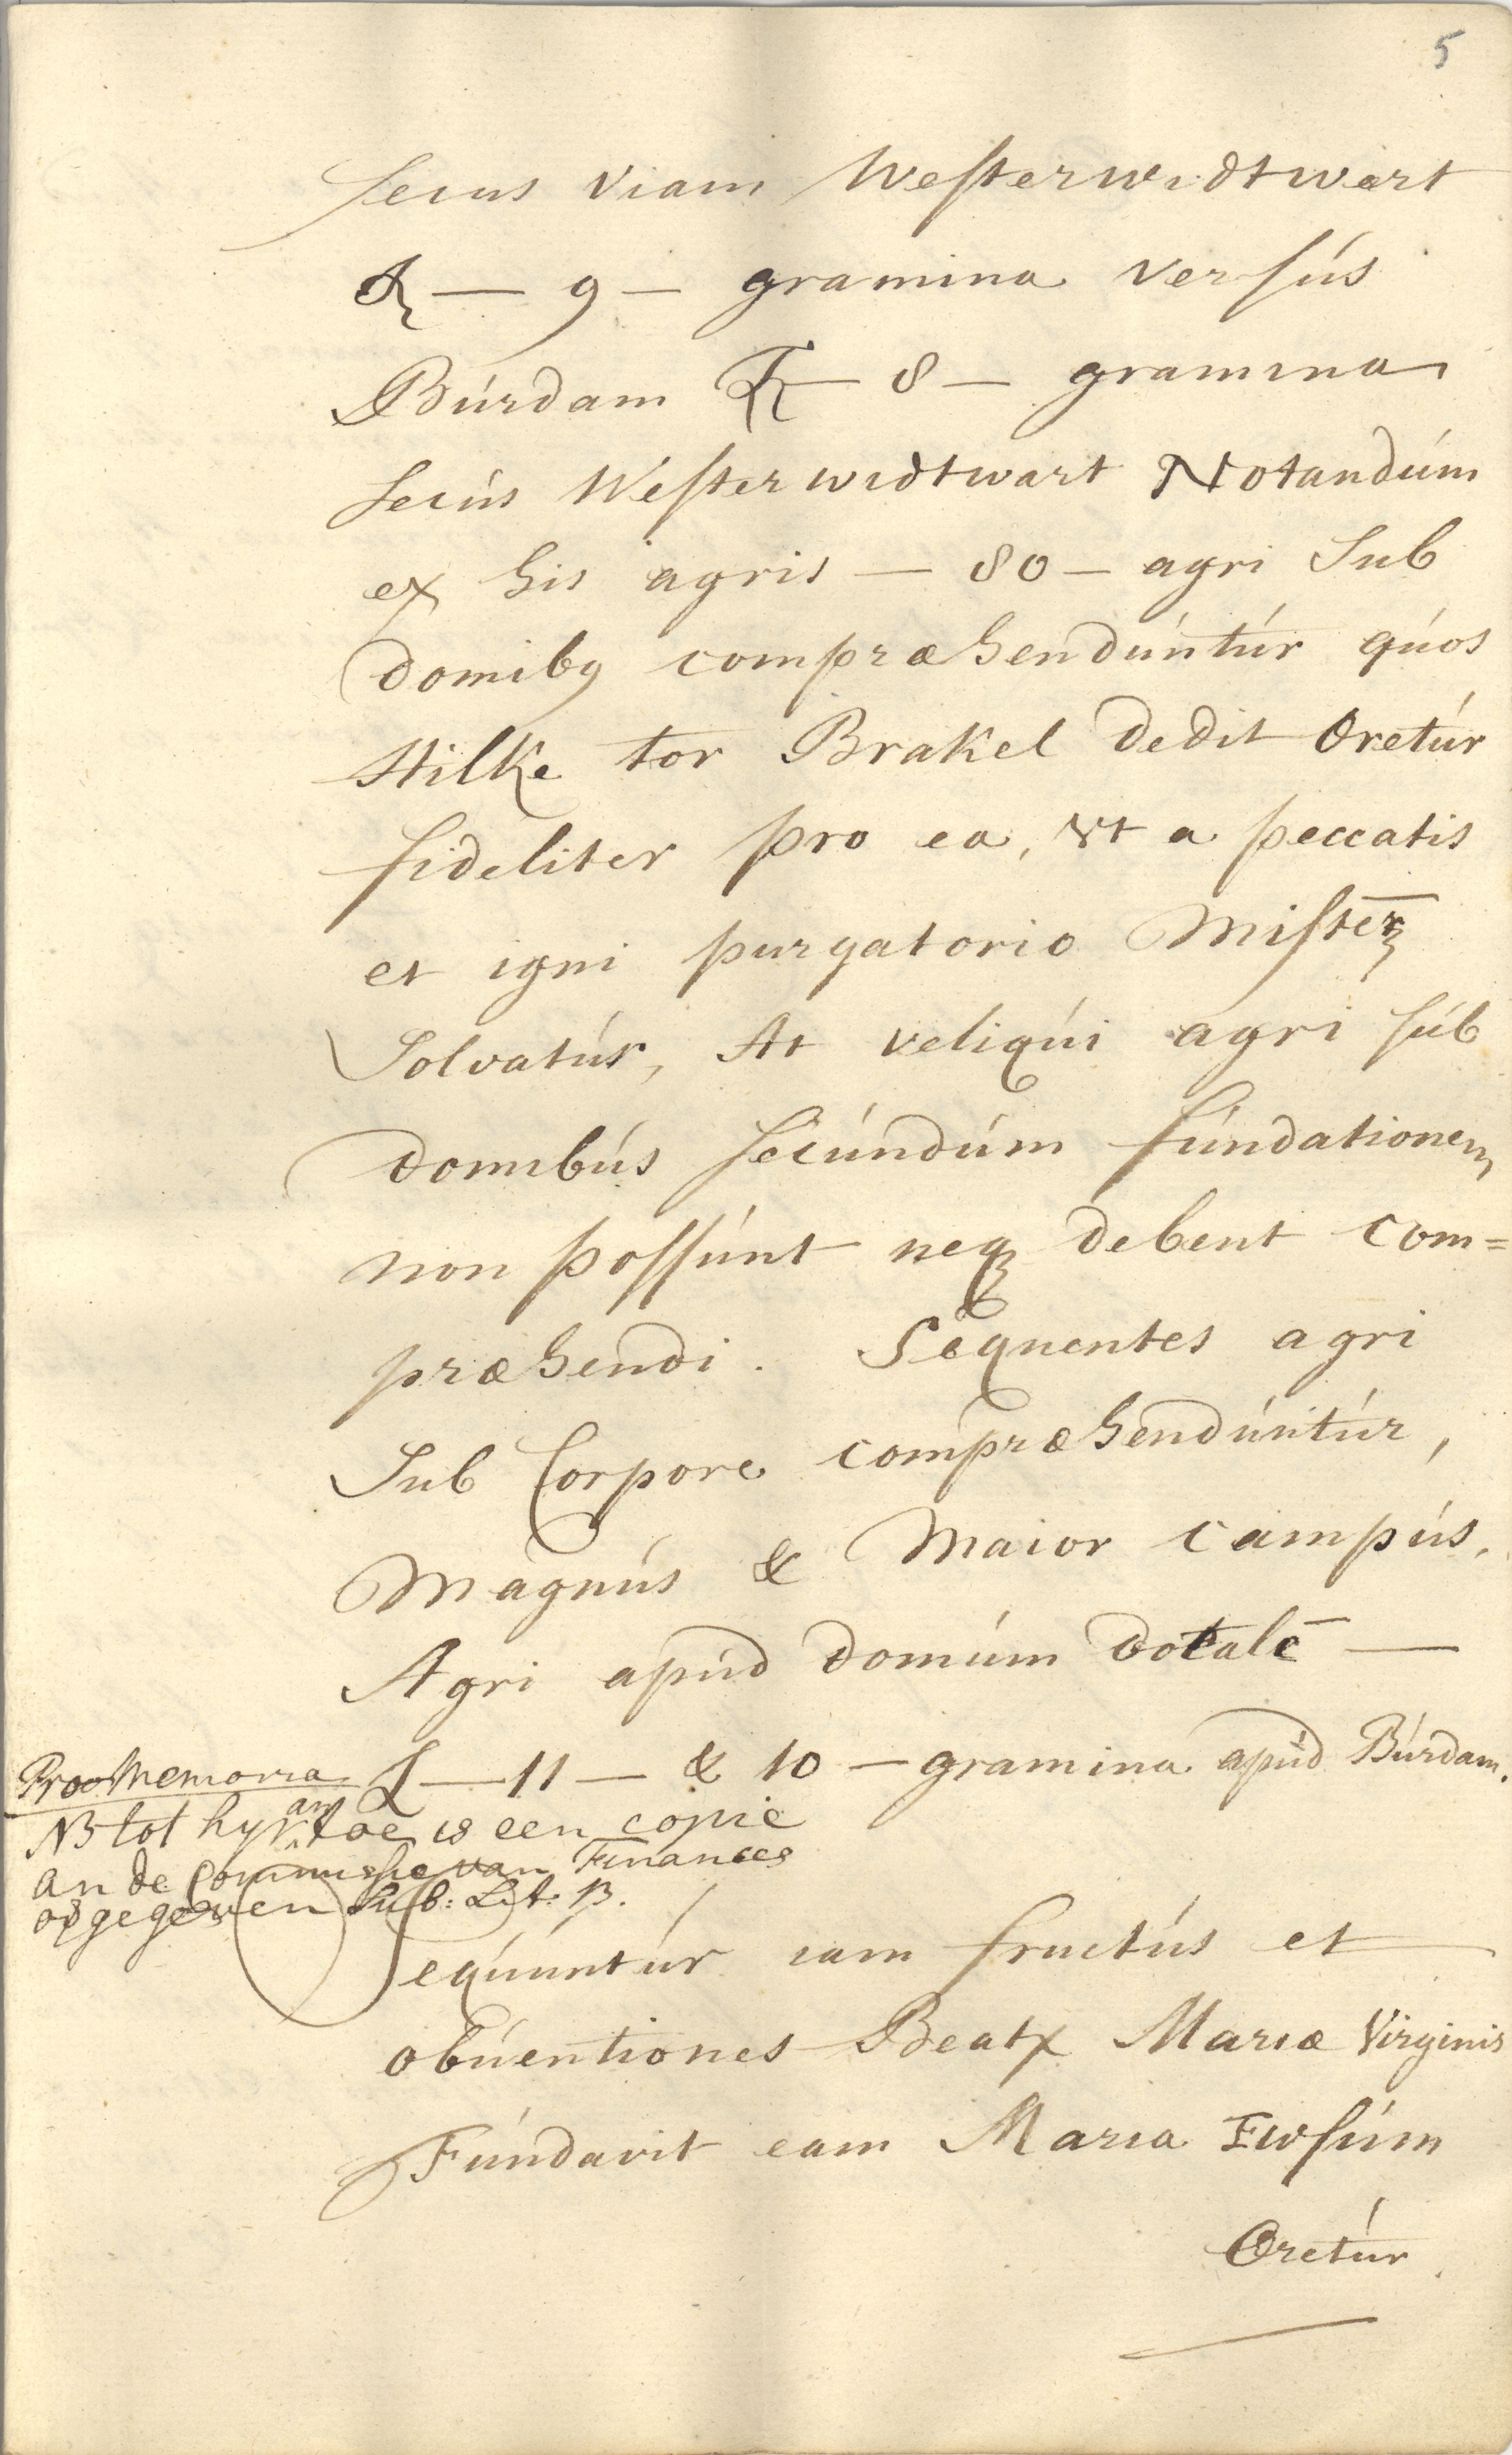 5
secus viam Westerwidtwert
& — 9 — gramina versús
Búrdam & — 8 — gramina
secús Westerwidtwart Notandúm
ex his agris — 80 — agri Sub
domiby compræhendúntúr qúos
Hilke tor Brakel dedit Oretúr
fideliter pro ea, vt a peccatis
et igni purgatorio
Solvatúr, At reliqúi agri súb
domibús secúndúm fúndationem
non possúnt neq debent com=
præhendi. Sequentes agri
Sub Corpore compræhendúntúr,
Magnús & Maior campús,
Agri apúd domúm dotalē —
— 11 — & 10 — gramina apúd Búrdam.
Proo Memoria
NB tot hyr an toe is een copie
an de Commissie van Finances
opgegeven Sub: Lit: B.
Seqúuntúr iam fructús et
obúentiones Beatæ Mariæ Virginis
Fúndavit eam Maria Ewsúm
Oretúr